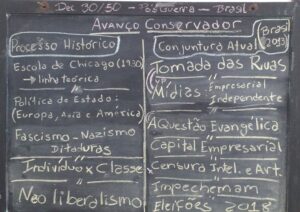 Dec 30/50 - Pós Guerra - Brasil
Avanço Conservador
Processo Histórico
Escola de Chicago (1930)
→ linha teórica
Política de Estado:
(Europa, Asia e América)
Fascismo - Nazismo
Ditaduras
Indivíduo x Classe
Neo liberalismo
Brasil
2013
Conjuntura Atual
Tomada das Ruas
Mídias Empresarial
Independente
A Questão Evangélica
Capital Empresarial
Censura Intel. e Art.
Impechemam
Eleições 2018